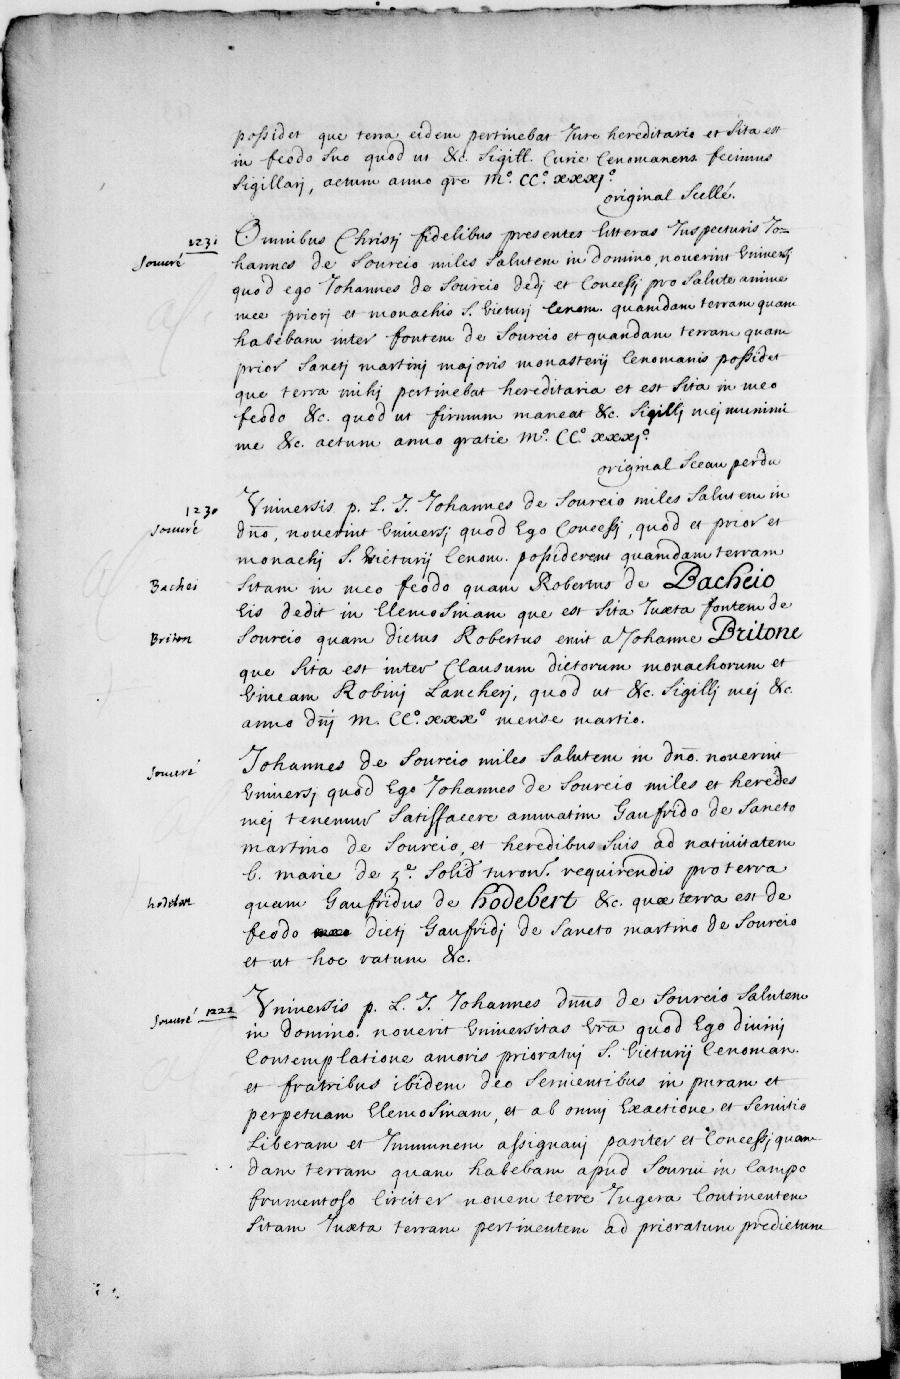 possidet que terra eidem pertinebat Jure hereditario et Sita est
in feodo Suo quod ut &c. Sigill. Curie Cenomanens fecimus
Sigillarj, actum anno gre Mº. CCº. xxxjº.
original Scellé.
1231
Omnibus Christj fidelibus presentes litteras Inspecturis Jo=
Souuré
hannes de Sourcio miles Salutem in domino, noverint Universj
quod ego Johannes de Sourcio dedj et Concessj pro Salute anime
mee priorj et monachis S. Victurj Cenom. quamdam terram quam
habebam inter fontem de Sourcio et quandam terram quam
prior Sanctj martinj majoris monasterij Cenomanis possidet
que terra mihj pertinebat hereditaria et est Sita in meo
feodo &c. quod ut firmum maneat &c. Sigillj mej munimi
me &c. actum anno gratie Mº. CCº xxxjº.
original Sceau perdu
Vniversis p. L. J. Johannes de Sourcio miles Salutem in
1230
Souuré
dño, noverint Universj quod Ego Concessj, quod et prior et
monachj S. Victurij Cenom. possiderent quamdam terram
Bachei
Sitam in meo feodo quam Robertus de Bacheio
Eis dedit in Elemosinam que est Sita Juxta fontem de
Briton
Sourcio quam dictus Robertus emit a Johanne Britone
que Sita est inter Clausum dictorum monachorum et
Vineam Robinj Lancherj, quod ut &c. Sigillj mej &c.
anno dñj M. CCº. xxxº mense martio.
Souuré
Johannes de Sourcio miles Salutem in dño. noverint
Universj quod Ego Johannes de Sourcio miles et heredes
mej tenemur Satisfacere annuatim Gaufrido de Sancto
martino de Sourcio, et heredibus Suis ad nativitatem
b. marie de 3e. Solid turon. requirendis pro terra
hodebert
quam Gaufridus de hodebert &c. quæ terra est de
feodo dictj Gaufridj de Sancto martino de Sourcio
et ut hoc ratum &c.
Souuré 1222
Vniversis p. L. J. Johannes dñus de Sourcio Salutem
in domino. noverit Universitas Vrã quod Ego divinj
Contemplatione amoris prioratuj S. Victurij Cenoman.
et fratribus ibidem deo Servientibus in puram et
perpetuam Elemosinam, et ab omnj Exactione et Servitio
Liberam et Immunem assignavj pariter et Concessj quam
dam terram quam habebam apud in Campo
frumentoso Circiter novem terre Jugera Continentem
Sitam Juxta terram pertinentem ad prioratum predictum